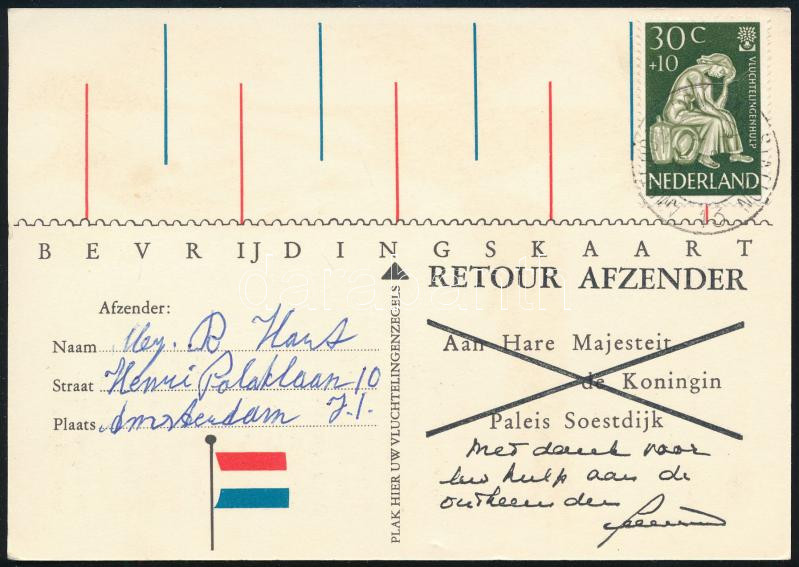 30 C
+10
VLUCHTELINGENHULP
NEDERLAND
13
BEVRIJDINGSKAART
RETOUR AFZENDER
Afzender:
Naam Mej. R Hart
Straat Henri Polaklaan 10
Plaats Amsterdam
PLAK HIER UW VLUCHTELINGENZEGELS
Aan Hare Majesteit
de Koningin
Paleis Soestdijk
Met dank voor
uw hulp aan de
ontheemden
darabanth